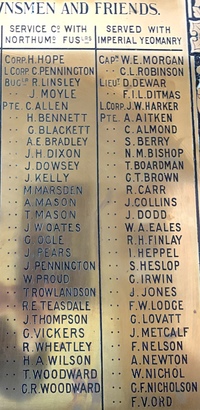 WNSMEN AND FRIENDS.
SERVICE Cº WITH
NORTHUMᴰ FUSᴿˢ
CORP. H. HOPE
L. CORP C. PENNINGTON
BUGLR R. LINSLEY
" " J. MOYLE
PTE. C. ALLEN
" " H. BENNETT
" " G. BLACKETT
" " A.E. BRADLEY
" " J.H. DIXON
" " J. DOWSEY
" " J. KELLY
" " M. MARSDEN
" " A. MASON
" " T. MASON
" " J.W. OATES
" " G. OGLE
" " J. PEARS
" " J. PENNINGTON
" " W. PROUD
" " T. ROWLANDSON
" " R.E. TEASDALE
" " J. THOMPSON
" " G. VICKERS
" " R. WHEATLEY
" " H.A. WILSON
" " T. WOODWARD
" " G.R. WOODWARD
SERVED WITH
IMPERIAL YEOMANRY
CAPᵀ W.E. MORGAN
" " C.L. ROBINSON
LIEUT D. DEWAR
" " F.I.L. DITMAS
L. CORP. J.W. HARKER
PTE. A. AITKEN
" " C. ALMOND
" " S. BERRY
" " N.M. BISHOP
" " T. BOARDMAN
" " G.T. BROWN
" " R. CARR
" " J. COLLINS
" " J. DODD
" " W.A. EALES
" " R.H. FINLAY
" " I. HEPPEL
" " S. HESLOP
" " G. IRWIN
" " J. JONES
" " F.W. LODGE
" " G. LOVATT
" " J. METCALF
" " F. NELSON
" " A. NEWTON
" " W. NICHOL
" " G.F. NICHOLSON
" " F.V. ORD